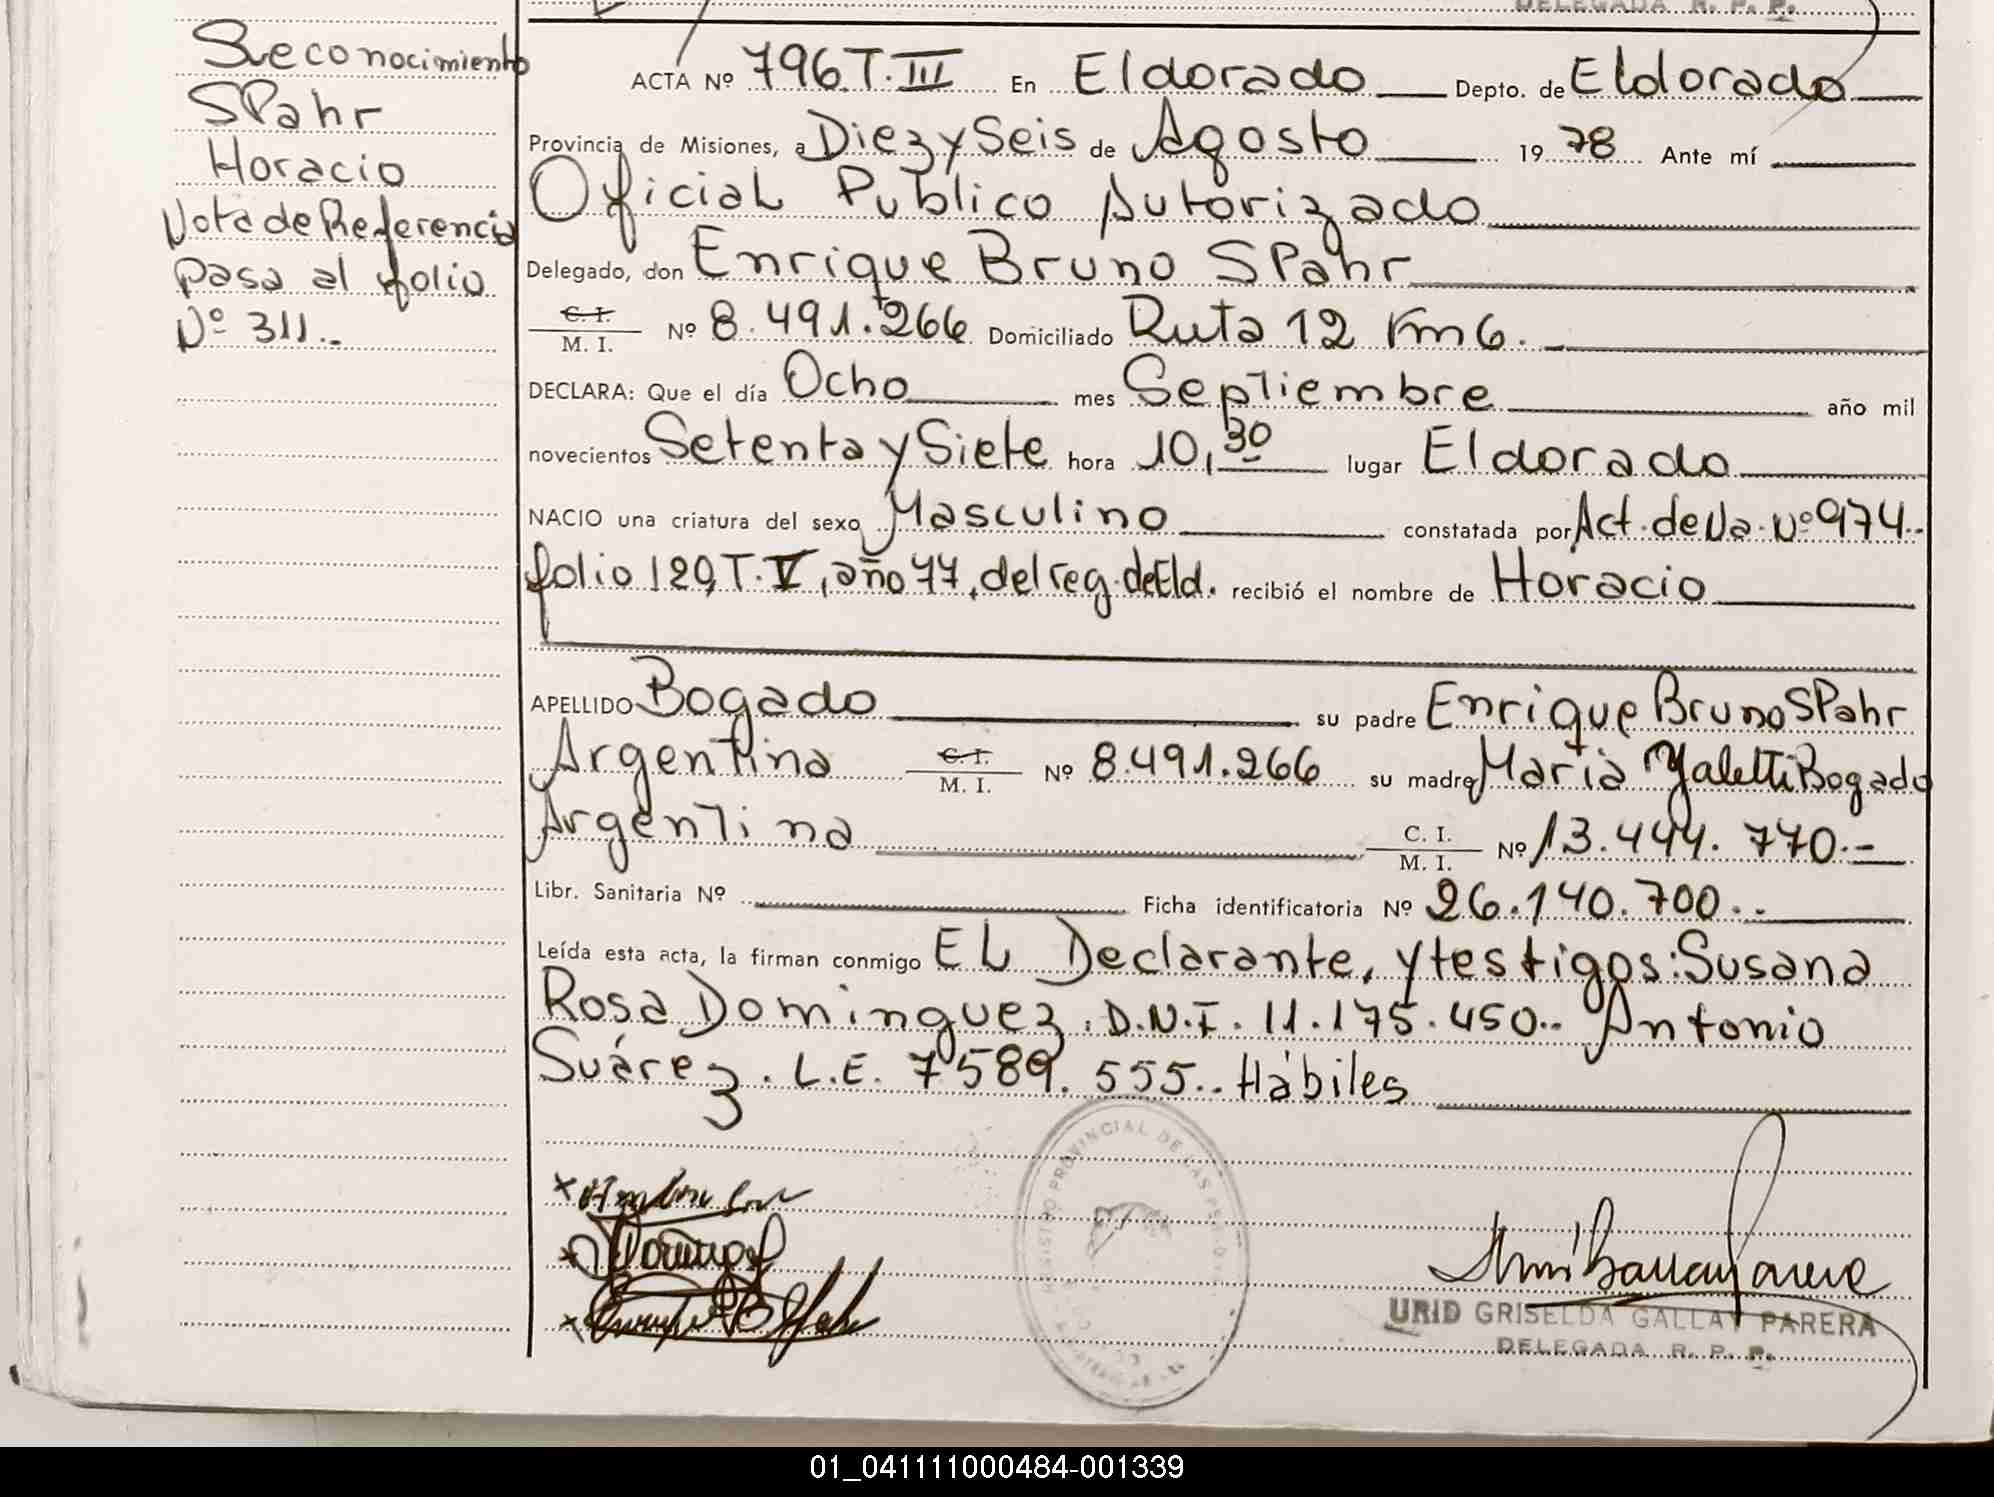 DELEGADA R. P. P.
Reconocimiento
SPahr
Horacio
Nota de Referencia
pasa al folio
Nº 311.-
ACTA Nº 796.T.III En Eldorado Depto. de Eldorado
Provincia de Misiones, a Diez y Seis de Agosto 1978 Ante mí
Oficial Publico Autorizado
Delegado, don Enrique Bruno SPahr
C. I.
M. I. Nº 8.491.266 Domiciliado Ruta 12 Km 6.
DECLARA: Que el día Ocho mes Septiembre año mil
novecientos Setenta y Siete hora 10,30 lugar Eldorado
NACIO una criatura del sexo Masculino constatada por Act. de Na. Nº 974.-
folio 129, T. V, año 77, del reg. de Eld. recibió el nombre de Horacio
APELLIDO Bogado su padre Enrique Bruno SPahr
Argentina C. I.
M. I. Nº 8.491.266 su madre Maria Yaletti Bogado
Argentina C. I.
M. I. Nº 13.444.770.-
Libr. Sanitaria Nº Ficha identificatoria Nº 26.140.700.-
Leída esta acta, la firman conmigo EL Declarante, y testigos: Susana
Rosa Dominguez. D.N.I. 11.175.450.. Antonio
Suárez. L.E. 7589.555.. Hábiles
REGISTRO PROVINCIAL DE LAS
URID GRISELDA GALLAY PARERA
DELEGADA R. P. P.
01_041111000484-001339